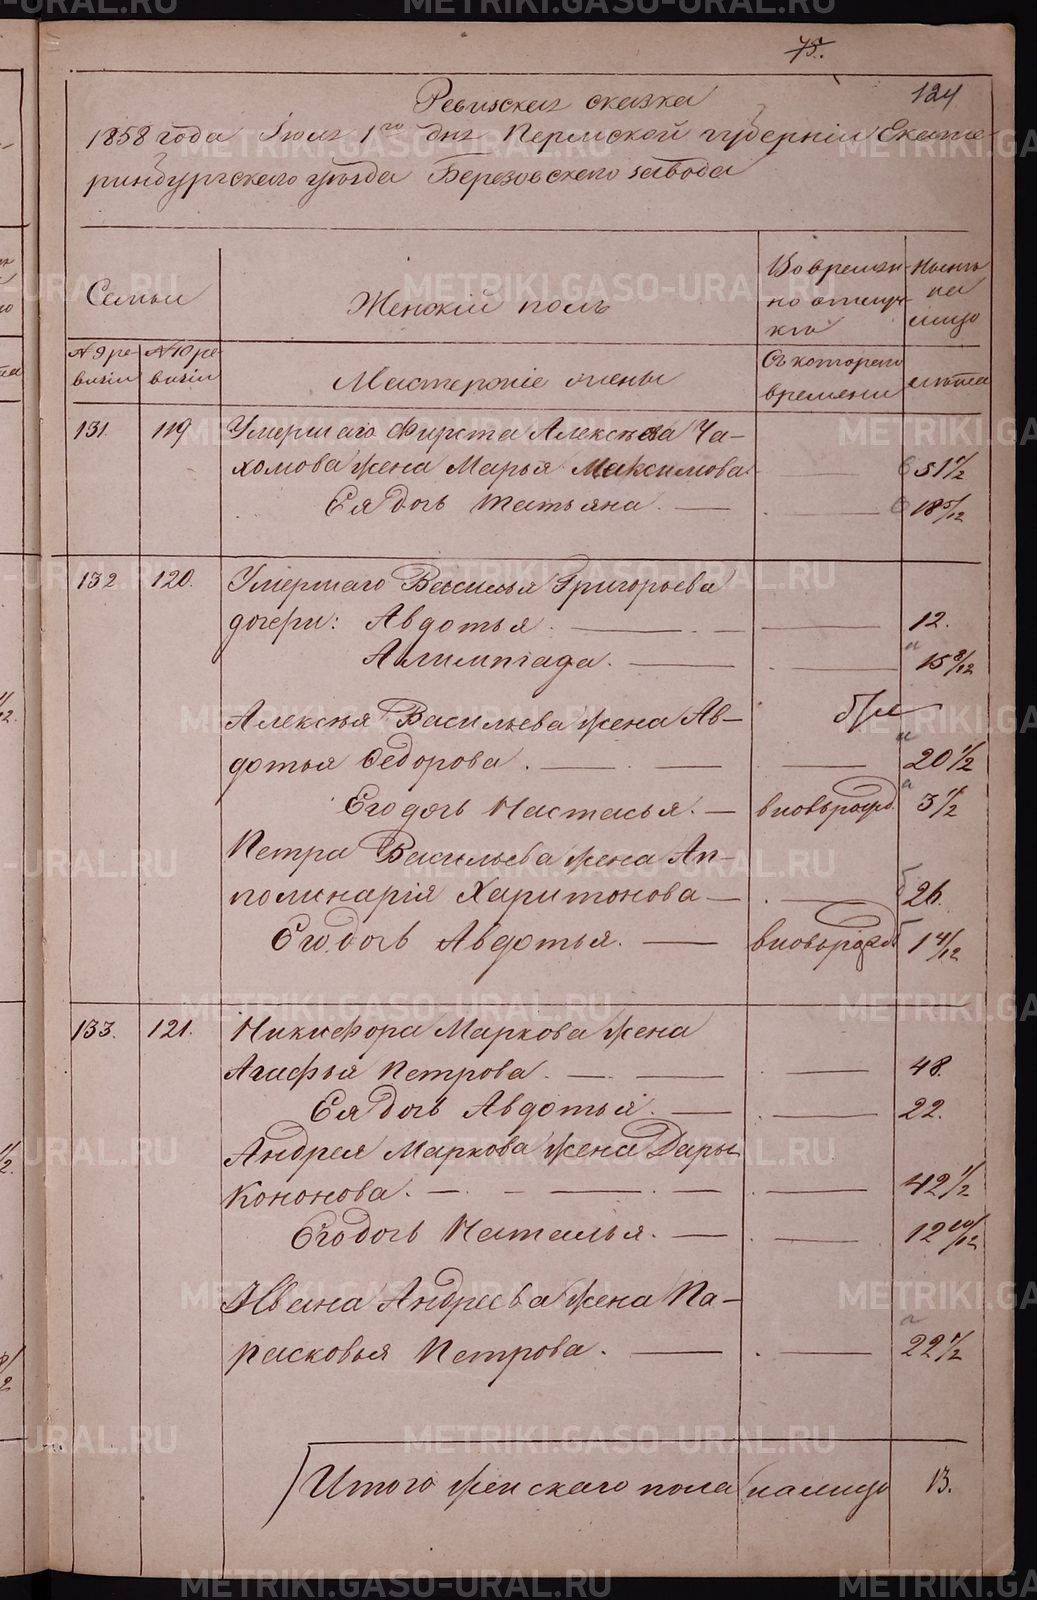 75.
124
Ревизская сказка
1858 года Июля 1го дня Пермской губернiи Екате-
ринбургского уѣзда Березовского завода
Семьи
Женскiй полъ
Во времен-
но отлуч-
кѣ
Нынѣ
на
лицо
№ 9 ре-
визiи
№ 10 ре-
визiи
Мастерскiе жены
Съ котораго
времени
лѣта
131. 119 Умершаго Фирста Алексѣева Ча-
хомова жена Марья Максимова 51 1/2
Ея дочь Татьяна. 18 5/12
132 120. Умершаго Василья Григорьева
дочери: Авдотья. 12.
Алимпiада. 15 8/12
Алексѣя Васильева жена Ав-
дотья Федорова. 20 1/2
Его дочь Настасья. вновьрожд. 3 1/2
Петра Васильева жена Ап-
полинарiя Харитонова 26.
Его дочь Авдотья. вновьрожд 1 4/12
133. 121. Никифора Маркова жена
Агафья Петрова. 48.
Ея дочь Авдотья. 22.
Андрея Маркова жена Дарья
Кононова. 42 1/2
Его дочь Наталья. 12 10/12
Ивана Андреева жена Па-
расковья Петрова. 22 1/2
Итого женскаго пола налицо 13.
METRIKI.GASO-URAL.RU